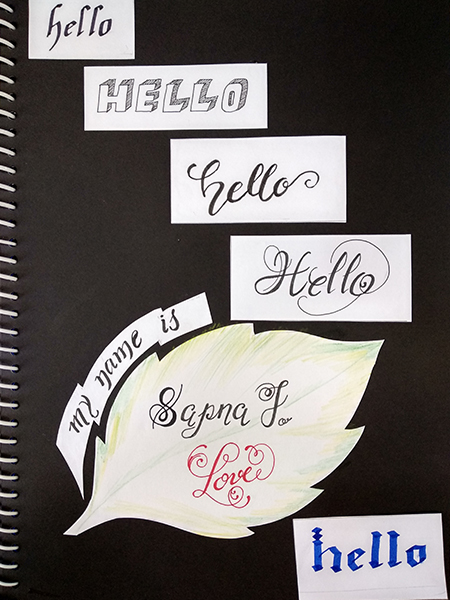 hello
HELLO
hello
Hello
my name is
Sapna J.
Love
hello